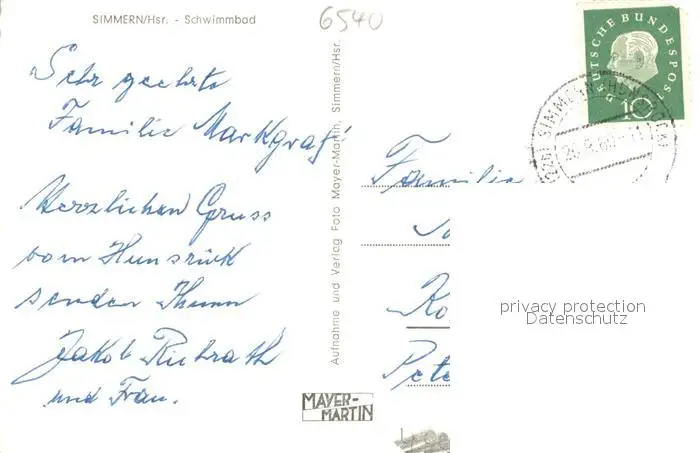 SIMMERN/Hsr. - Schwimmbad
6540
Sehr geehrte
Familie Markgraf
Herzlichen Gruss
vom Hunsrück
senden Ihnen
Jakob Rieþrath
und Frau.
Aufnahme und Verlag Foto Mayer-Martin, Simmern/Hsr.
MAYER-
MARTIN
DEUTSCHE BUNDESPOST
10
SIMMERN
Familie
Ko
Pete
privacy protection
Datenschutz